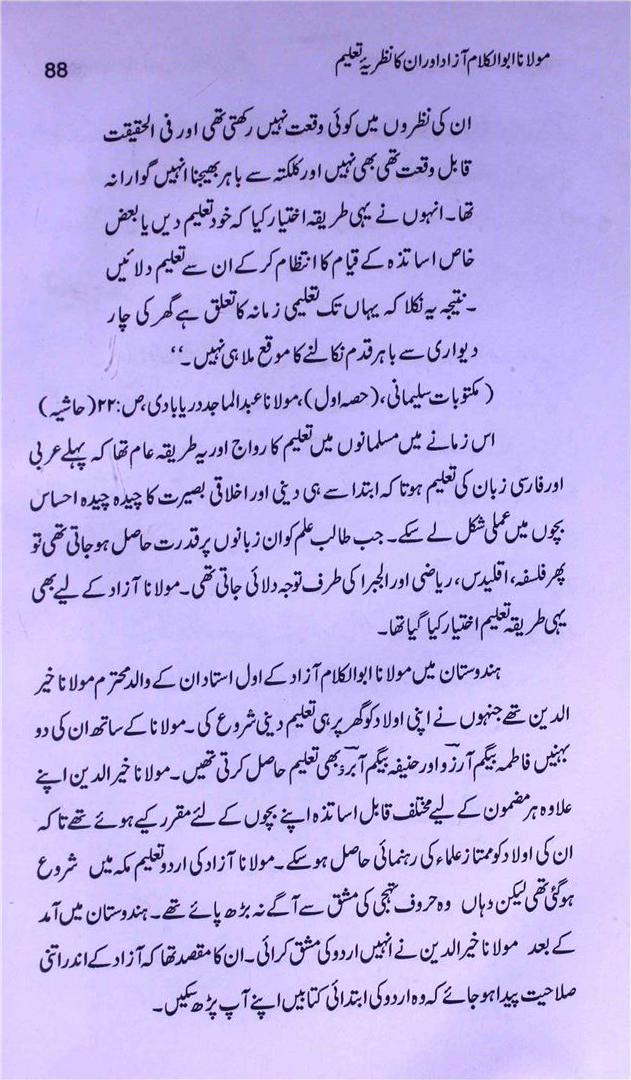 مولانا ابوالکلام آزاد اور ان کا نظریۂ تعلیم
88
ان کی نظروں میں کوئی وقعت نہیں رکھتی تھی اور فی الحقیقت
قابل وقعت تھی بھی نہیں اور کلکتہ سے باہر بھیجنا انہیں گوارا نہ
تھا۔ انہوں نے یہی طریقہ اختیار کیا کہ خود تعلیم دیں یا بعض
خاص اساتذہ کے قیام کا انتظام کر کے ان سے تعلیم دلائیں
۔ نتیجہ یہ نکلا کہ یہاں تک تعلیمی زمانہ کا تعلق ہے گھر کی چار
دیواری سے باہر قدم نکالنے کا موقع ملا ہی نہیں۔‘‘
(مکتوبات سلیمانی، (حصہ اول)، مولانا عبدالماجد دریابادی، ص: ۲۲ (حاشیہ)
اس زمانے میں مسلمانوں میں تعلیم کا رواج اور یہ طریقہ عام تھا کہ پہلے عربی
اور فارسی زبان کی تعلیم ہوتا کہ ابتدا سے ہی دینی اور اخلاقی بصیرت کا چیدہ چیدہ احساس
بچوں میں عملی شکل لے سکے۔ جب طالب علم کو ان زبانوں پر قدرت حاصل ہو جاتی تھی تو
پھر فلسفہ، اقلیدس، ریاضی اور الجبرا کی طرف توجہ دلائی جاتی تھی۔ مولانا آزاد کے لیے بھی
یہی طریقہ تعلیم اختیار کیا گیا تھا۔
ہندوستان میں مولانا ابوالکلام آزاد کے اول استاد ان کے والد محترم مولانا خیر
الدین تھے جنہوں نے اپنی اولاد کو گھر پر ہی تعلیم دینی شروع کی۔ مولانا کے ساتھ ان کی دو
بہنیں فاطمہ بیگم آرزو اور حنیفہ بیگم آبرو بھی تعلیم حاصل کرتی تھیں۔ مولانا خیر الدین اپنے
علاوہ ہر مضمون کے لیے مختلف قابل اساتذہ اپنے بچوں کے لئے مقرر کیے ہوئے تھے تا کہ
ان کی اولاد کو ممتاز علماء کی رہنمائی حاصل ہو سکے۔ مولانا آزاد کی اردو تعلیم مکہ میں شروع
ہو گئی تھی لیکن وہاں وہ حروف تہجی کی مشق سے آگے نہ بڑھ پائے تھے۔ ہندوستان میں آمد
کے بعد مولانا خیر الدین نے انہیں اردو کی مشق کرائی۔ ان کا مقصد تھا کہ آزاد کے اندر اتنی
صلاحیت پیدا ہو جائے کہ وہ اردو کی ابتدائی کتابیں اپنے آپ پڑھ سکیں۔